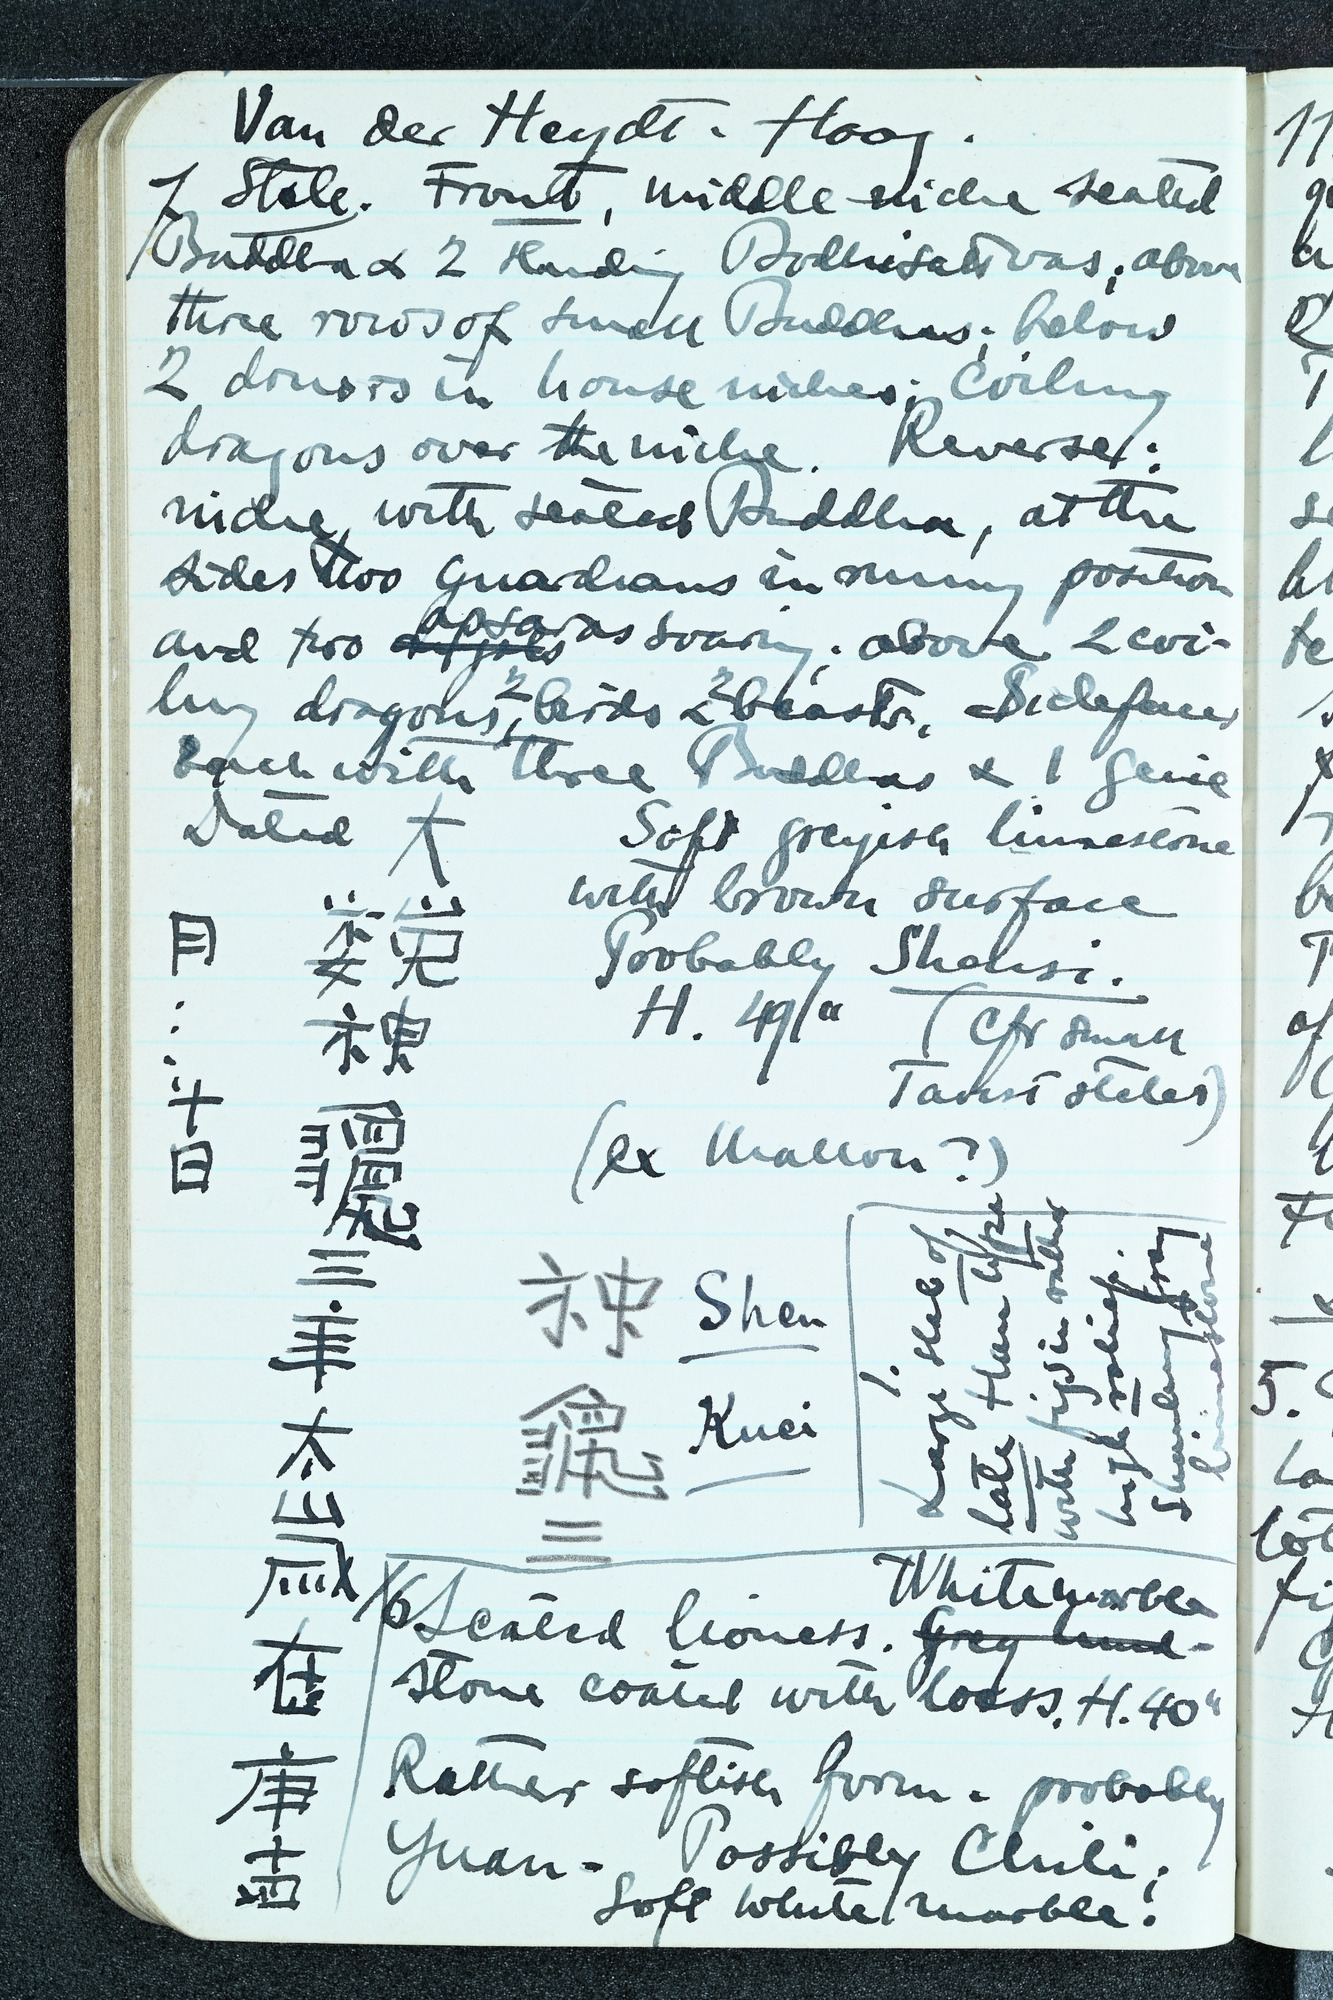 Van der Heydt - Haag.
7 Stele. Front, middle niche seated
Buddha & 2 standing Bodhisattvas; above
three rows of small Buddhas; below
2 donors in house niches; Coiling
dragons over the niche. Reverse:
niche, with seated Buddha, at the
sides two guardians in running position
and two apsaras soaring; above 2 coi-
ling dragons, 2 birds 2 beasts. Sidefaces
Each with three Buddhas & 1 genie
Dated 大
Soft greyish limestone
with brown surface
Probably Shensi.
H. 49/"
(Cfr small
Taoist steles)
(ex Mallon?)
魏
神
龜
三
年
太
山
在
庚
月
十
日
神 Shen
龜 Kuei
三
1.
Large slab of
late Han type
with figs in rather
high relief.
Shantung gray
limestone
6 Seated lioness. White marble
Grey
stone coated with loess. H. 40"
Rather softish form - probably
Yuan - Possibly Chili;
Soft white marble!